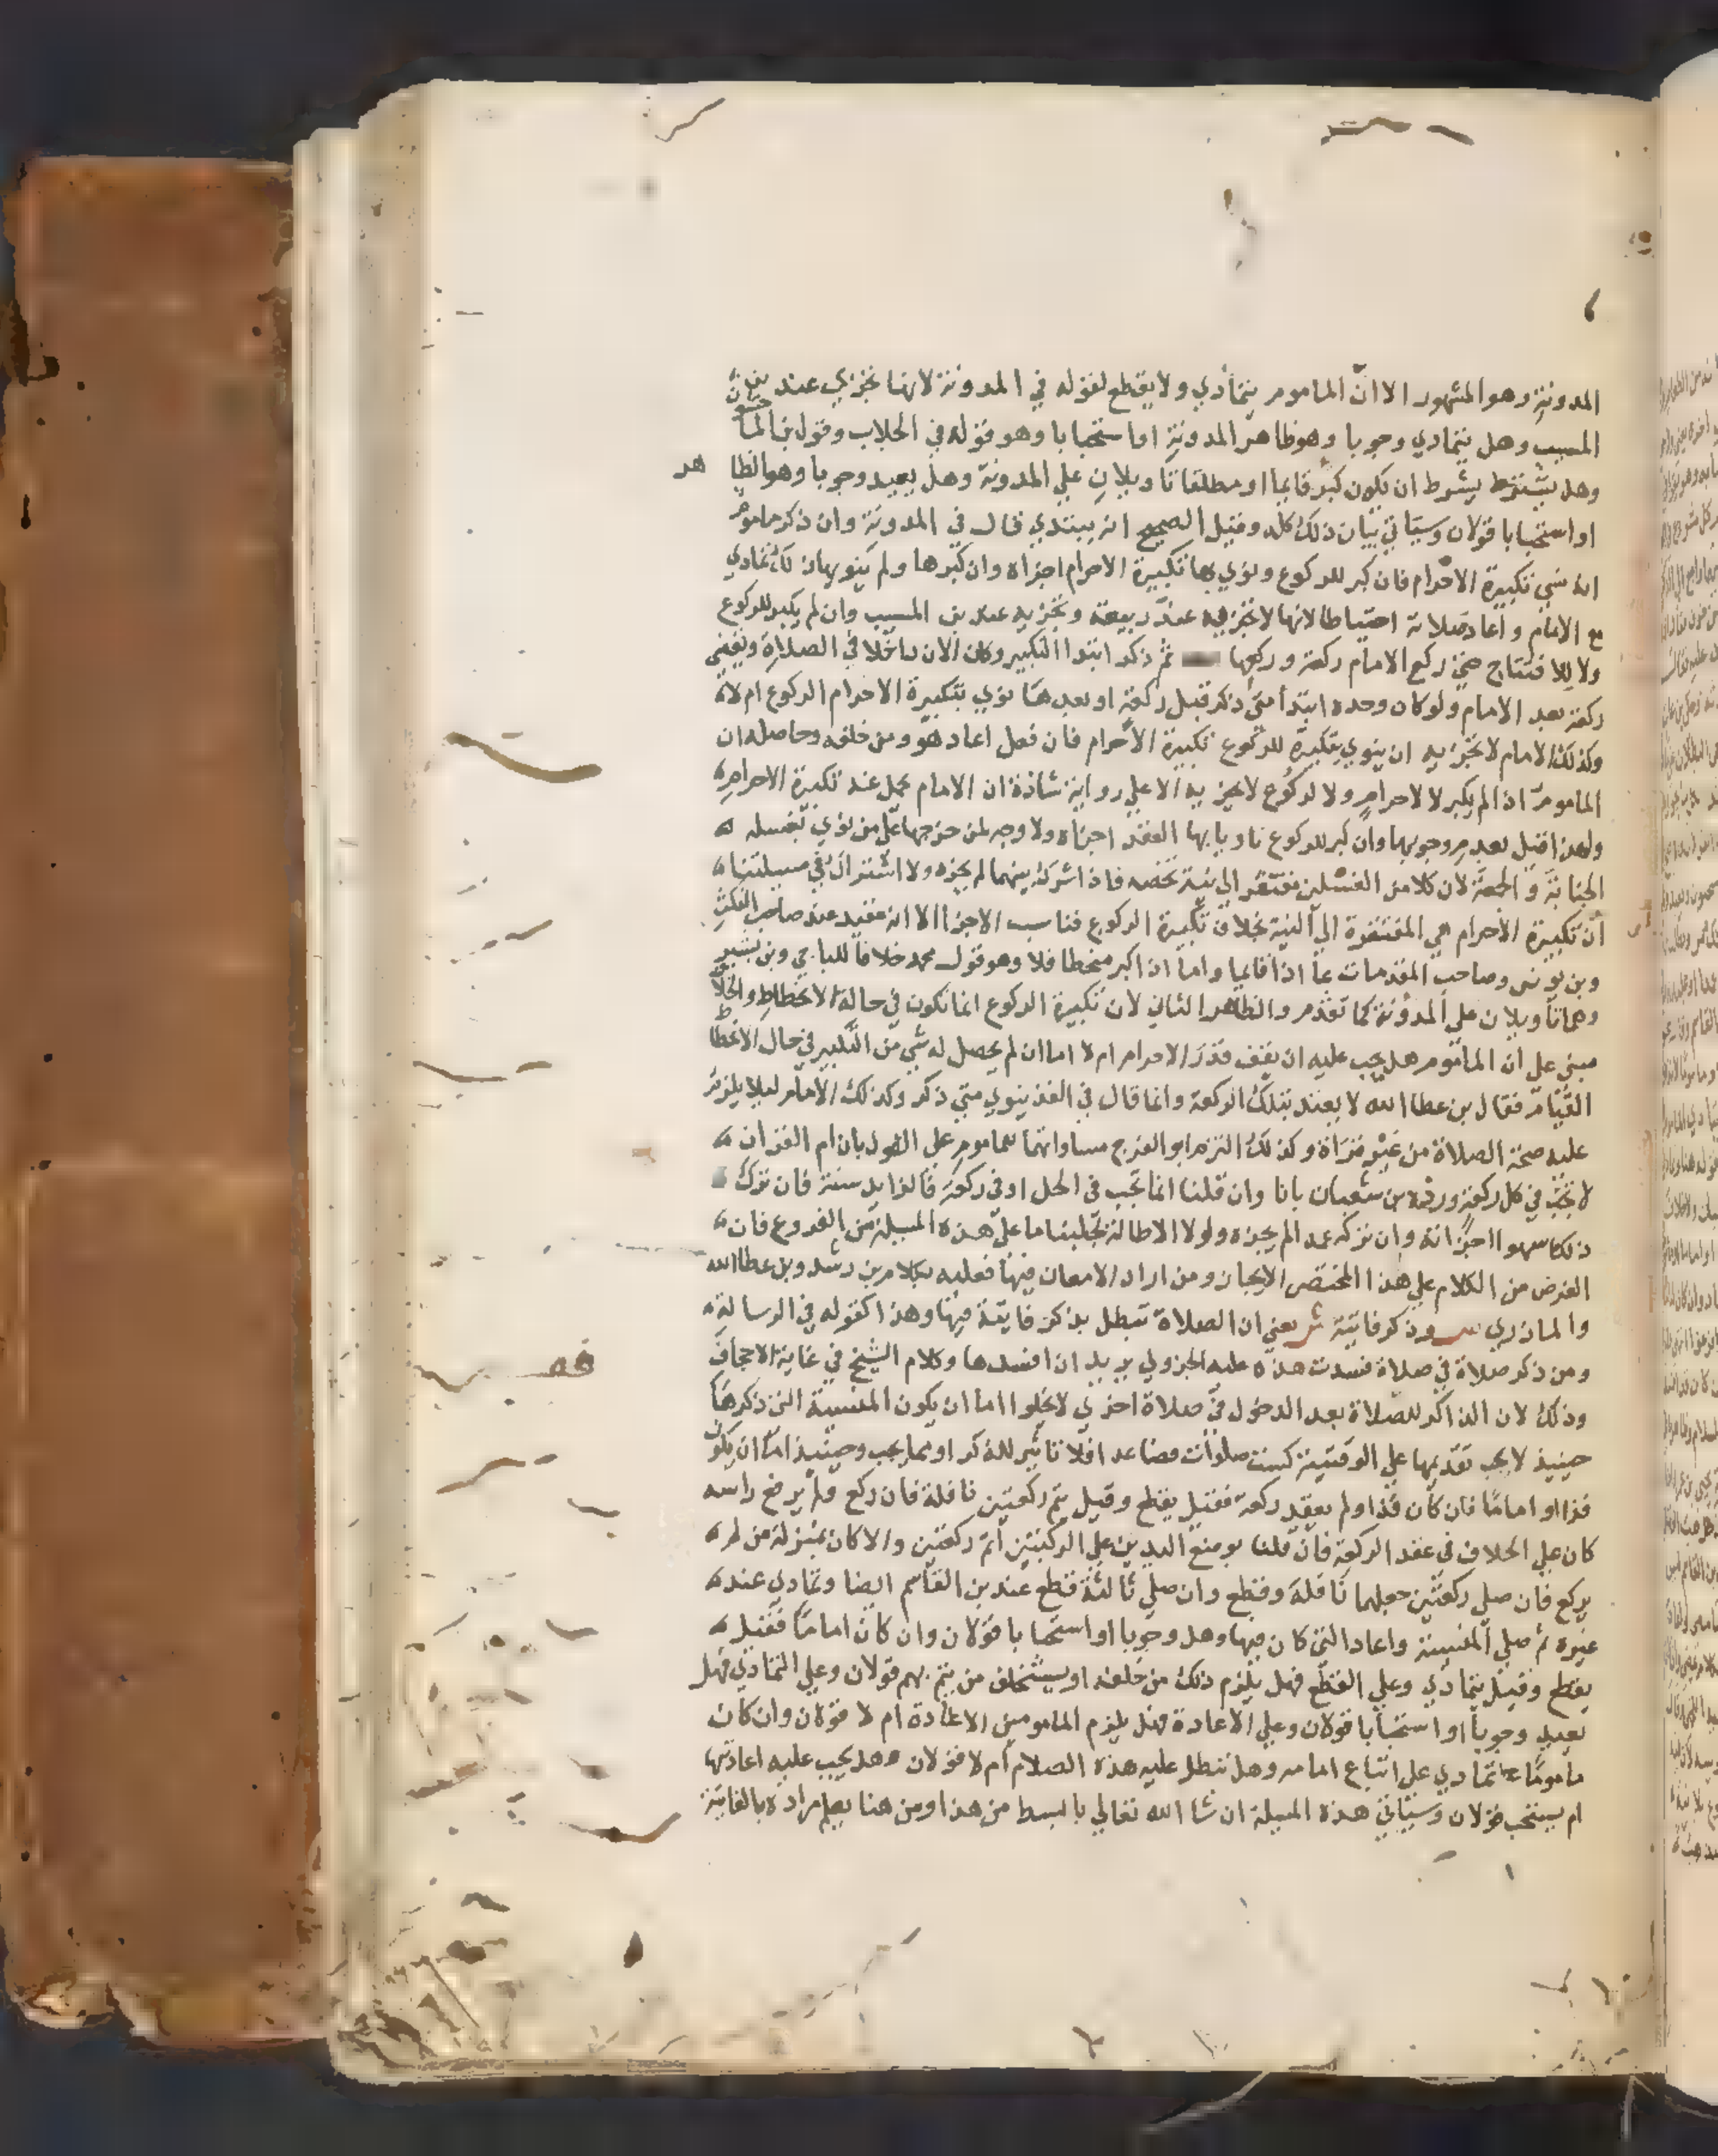 المدونة وهو المشهور الا ان الماموم يتمادي ولا يقطع لقوله في المدونة لانها تجزي عند بن
المسيب وهل يتمادي وجوبا وهو ظاهر المدونة او استحبابا وهو قوله في الجلاب وقول بن الماجشون
وهل يشترط بشرط ان يكون كبر قايما او مطلقا تاويلان علي المدونة وهل يعيد وجوبا وهو الظاهر
او استحبابا قولان وسياتي بيان ذلك كله وقيل الصحيح انه يبتدي قال في المدونة وان ذكر ماموم
انه نسي تكبيرة الاحرام فان كبر للركوع ونوي بها تكبيرة الاحرام اجزاه وان كبرها ولم ينو بها ذلك تمادي
مع الامام واعاد صلاته احتياطا لانها لا تجزيه عند ربيعة وتجزيه عند بن المسيب وان لم يكبر للركوع
ولا للافتتاح حتي ركع الامام ركعة وركعها ثم ذكر ابتدا التكبير وكان الان داخلا في الصلاة ويقضي
ركعة بعد الامام ولو كان وحده ابتدأ متي ذكر قبل ركعة او بعدها نوي بتكبيرة الاحرام الركوع ام لا
وكذلك الامام لا تجزيه ان ينوي بتكبيرة للركوع تكبيرة الاحرام فان فعل اعاد هو ومن خلفه وحاصله ان
الماموم اذا لم يكبر لا لاحرام ولا لركوع لا يجزيه الا علي رواية شاذة ان الامام يحمل عنه تكبيرة الاحرام
ولهذا قيل بعدم وجوبها وان كبر للركوع ناويا بها العقد اجزاه ولا وجه لمن خرجها علي من نوي بغسله
الجنابة والجمعة لان كلا من الغسلين مفتقر الي نية تخصه فاذا اشرك بينهما لم يجزه ولا اشتراك في مسيلتنا
ان تكبيرة الاحرام هي المفتقرة الي النية بخلاف تكبيرة الركوع فناسب الاجزا الا انه مقيد عند صاحب النكت
وبن يونس وصاحب المقدمات بما اذا قايما واما اذا كبر منحطا فلا وهو قول محمد خلافا للباجي وبن بشير
وهما تاويلان علي المدونة كما تقدم والظاهر الثاني لان تكبيرة الركوع انما تكون في حالة الانحطاط والخلاف
مبني علي ان الماموم هل يجب عليه ان يقف قدر الاحرام ام لا اما ان لم يحصل له شي من التكبير في حال الانحطاط
القيام فقال بن عطا الله لا يعتد بتلك الركعة وانما قال في الفذ ينوي متي ذكر وكذلك الامام ليلا يلزم
عليه صحة الصلاة من غير قراة وكذلك التزم ابو الفرج مساواتهما للماموم علي القول بان ام القران
لا تجب في كل ركعة ورده بن شعبان بانا وان قلنا انما تجب في الجل او في ركعة فالزايد سنة فان ترك
ذلك سهوا اجزاته وان تركه عمدا لم يجزه ولولا الاطالة لجلبنا ما علي هذه المسيلة من الفروع فان
الغرض من الكلام علي هذا المختصر الايجاز ومن اراد الامعان فيها فعليه بكلام بن رشد وبن عطا الله
والمازري ص وذكر فايتة ش يعني ان الصلاة تبطل بذكر فايتة فيها وهذا كقوله في الرسالة
ومن ذكر صلاة في صلاة فسدت هذه عليه الجزولي يريد ان افسدها وكلام الشيخ في غاية الاجحاف
وذلك لان الذاكر للصلاة بعد الدخول في صلاة اخري لا يخلوا اما ان يكون المنسية التي ذكرها
حينيذ لا يجب تقديمها علي الوقتية كست صلوات فصاعدا فلا تاثير للذكر او مما يجب وحينيذ اما ان يكون
فذا او اماما فان كان فذا ولم يعقد ركعة فقيل يقطع وقيل يتم ركعتين نافلة فان ركع ولم يرفع راسه
كان علي الخلاف في عقد الركعة فان قلنا بوضع اليدين علي الركبتين اتم ركعتين والا كان بمنزلة من لم
يركع فان صلي ركعتين جعلهما نافلة وقطع وان صلي ثالثة قطع عند بن القاسم ايضا وتمادي عند
غيره ثم صلي المنسية واعاد التي كان فيها وهل وجوبا او استحبابا قولان وان كان اماما فقيل
يقطع وقيل يتمادي وعلي القطع فهل يلزم ذلك من خلفه او يستخلف من يتم بهم قولان وعلي التمادي فهل
يعيد وجوبا او استحبابا قولان وعلي الاعادة فهل يلزم المامومين الاعادة ام لا قولان وان كان
ماموما تمادي علي اتباع امامه وهل تبطل عليه هذه الصلاة ام لا قولان وهل يجب عليه اعادتها
ام يستحب قولان وستاتي هذه المسيلة ان شا الله تعالي بابسط من هذا ومن هنا يعلم مراده بالفايتة